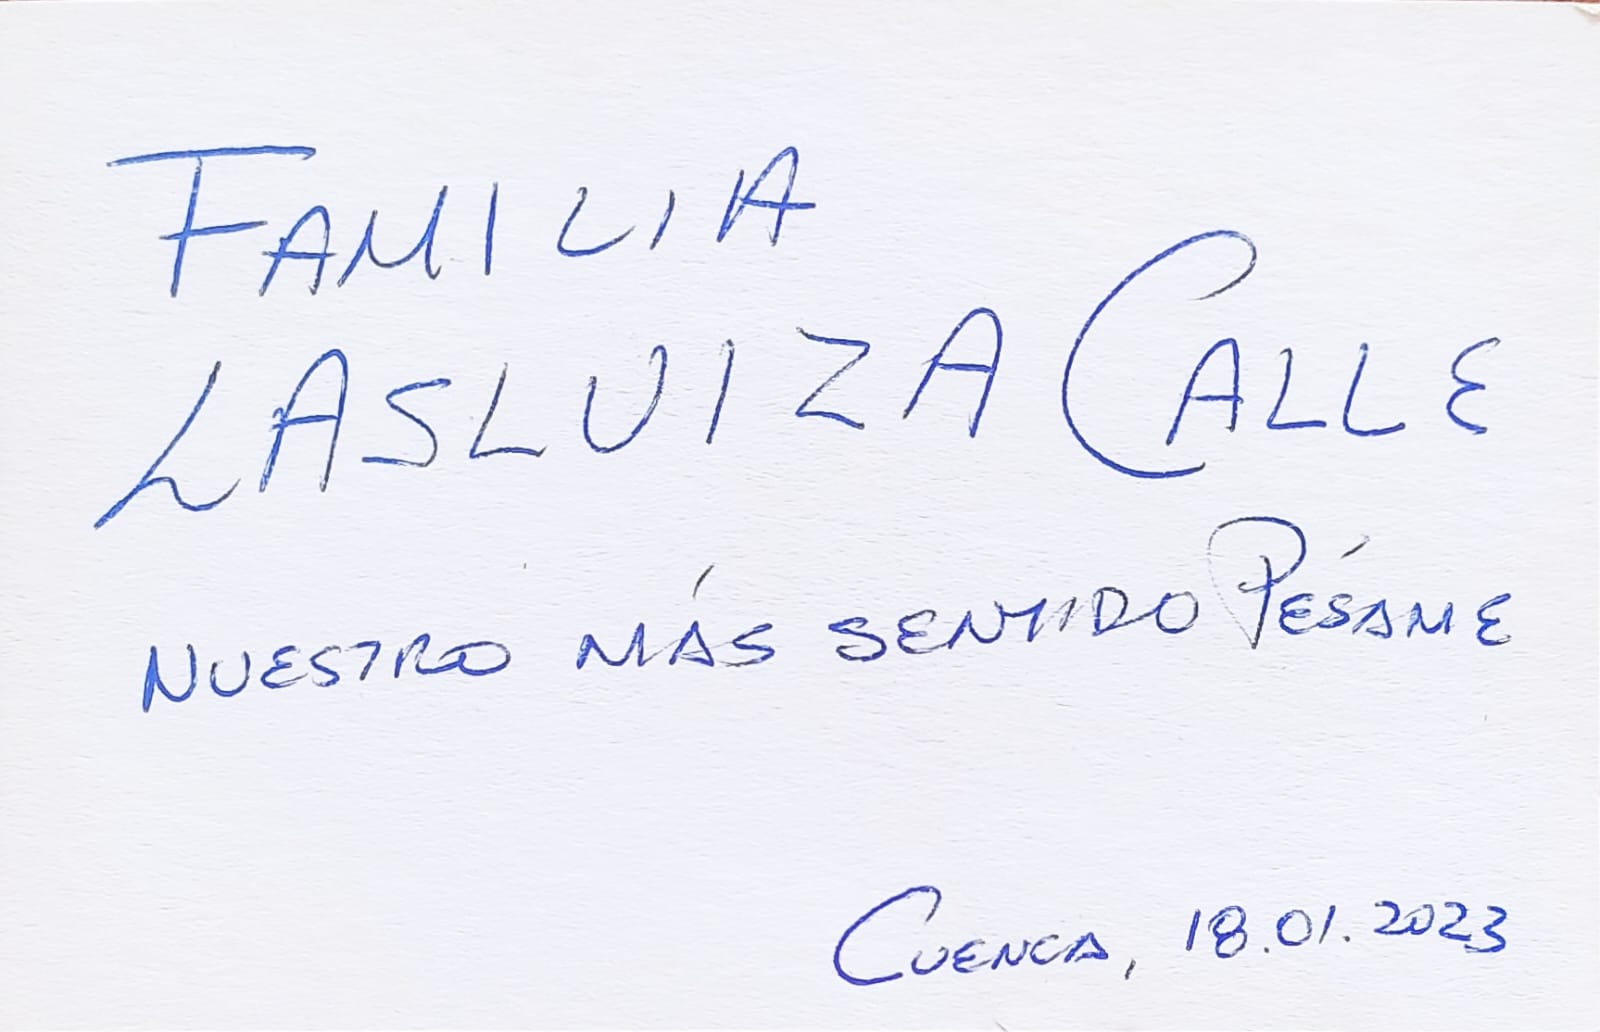 FAMILIA
LASLUIZA CALLE
NUESTRO MÁS SENTIDO PÉSAME
CUENCA, 18.01.2023